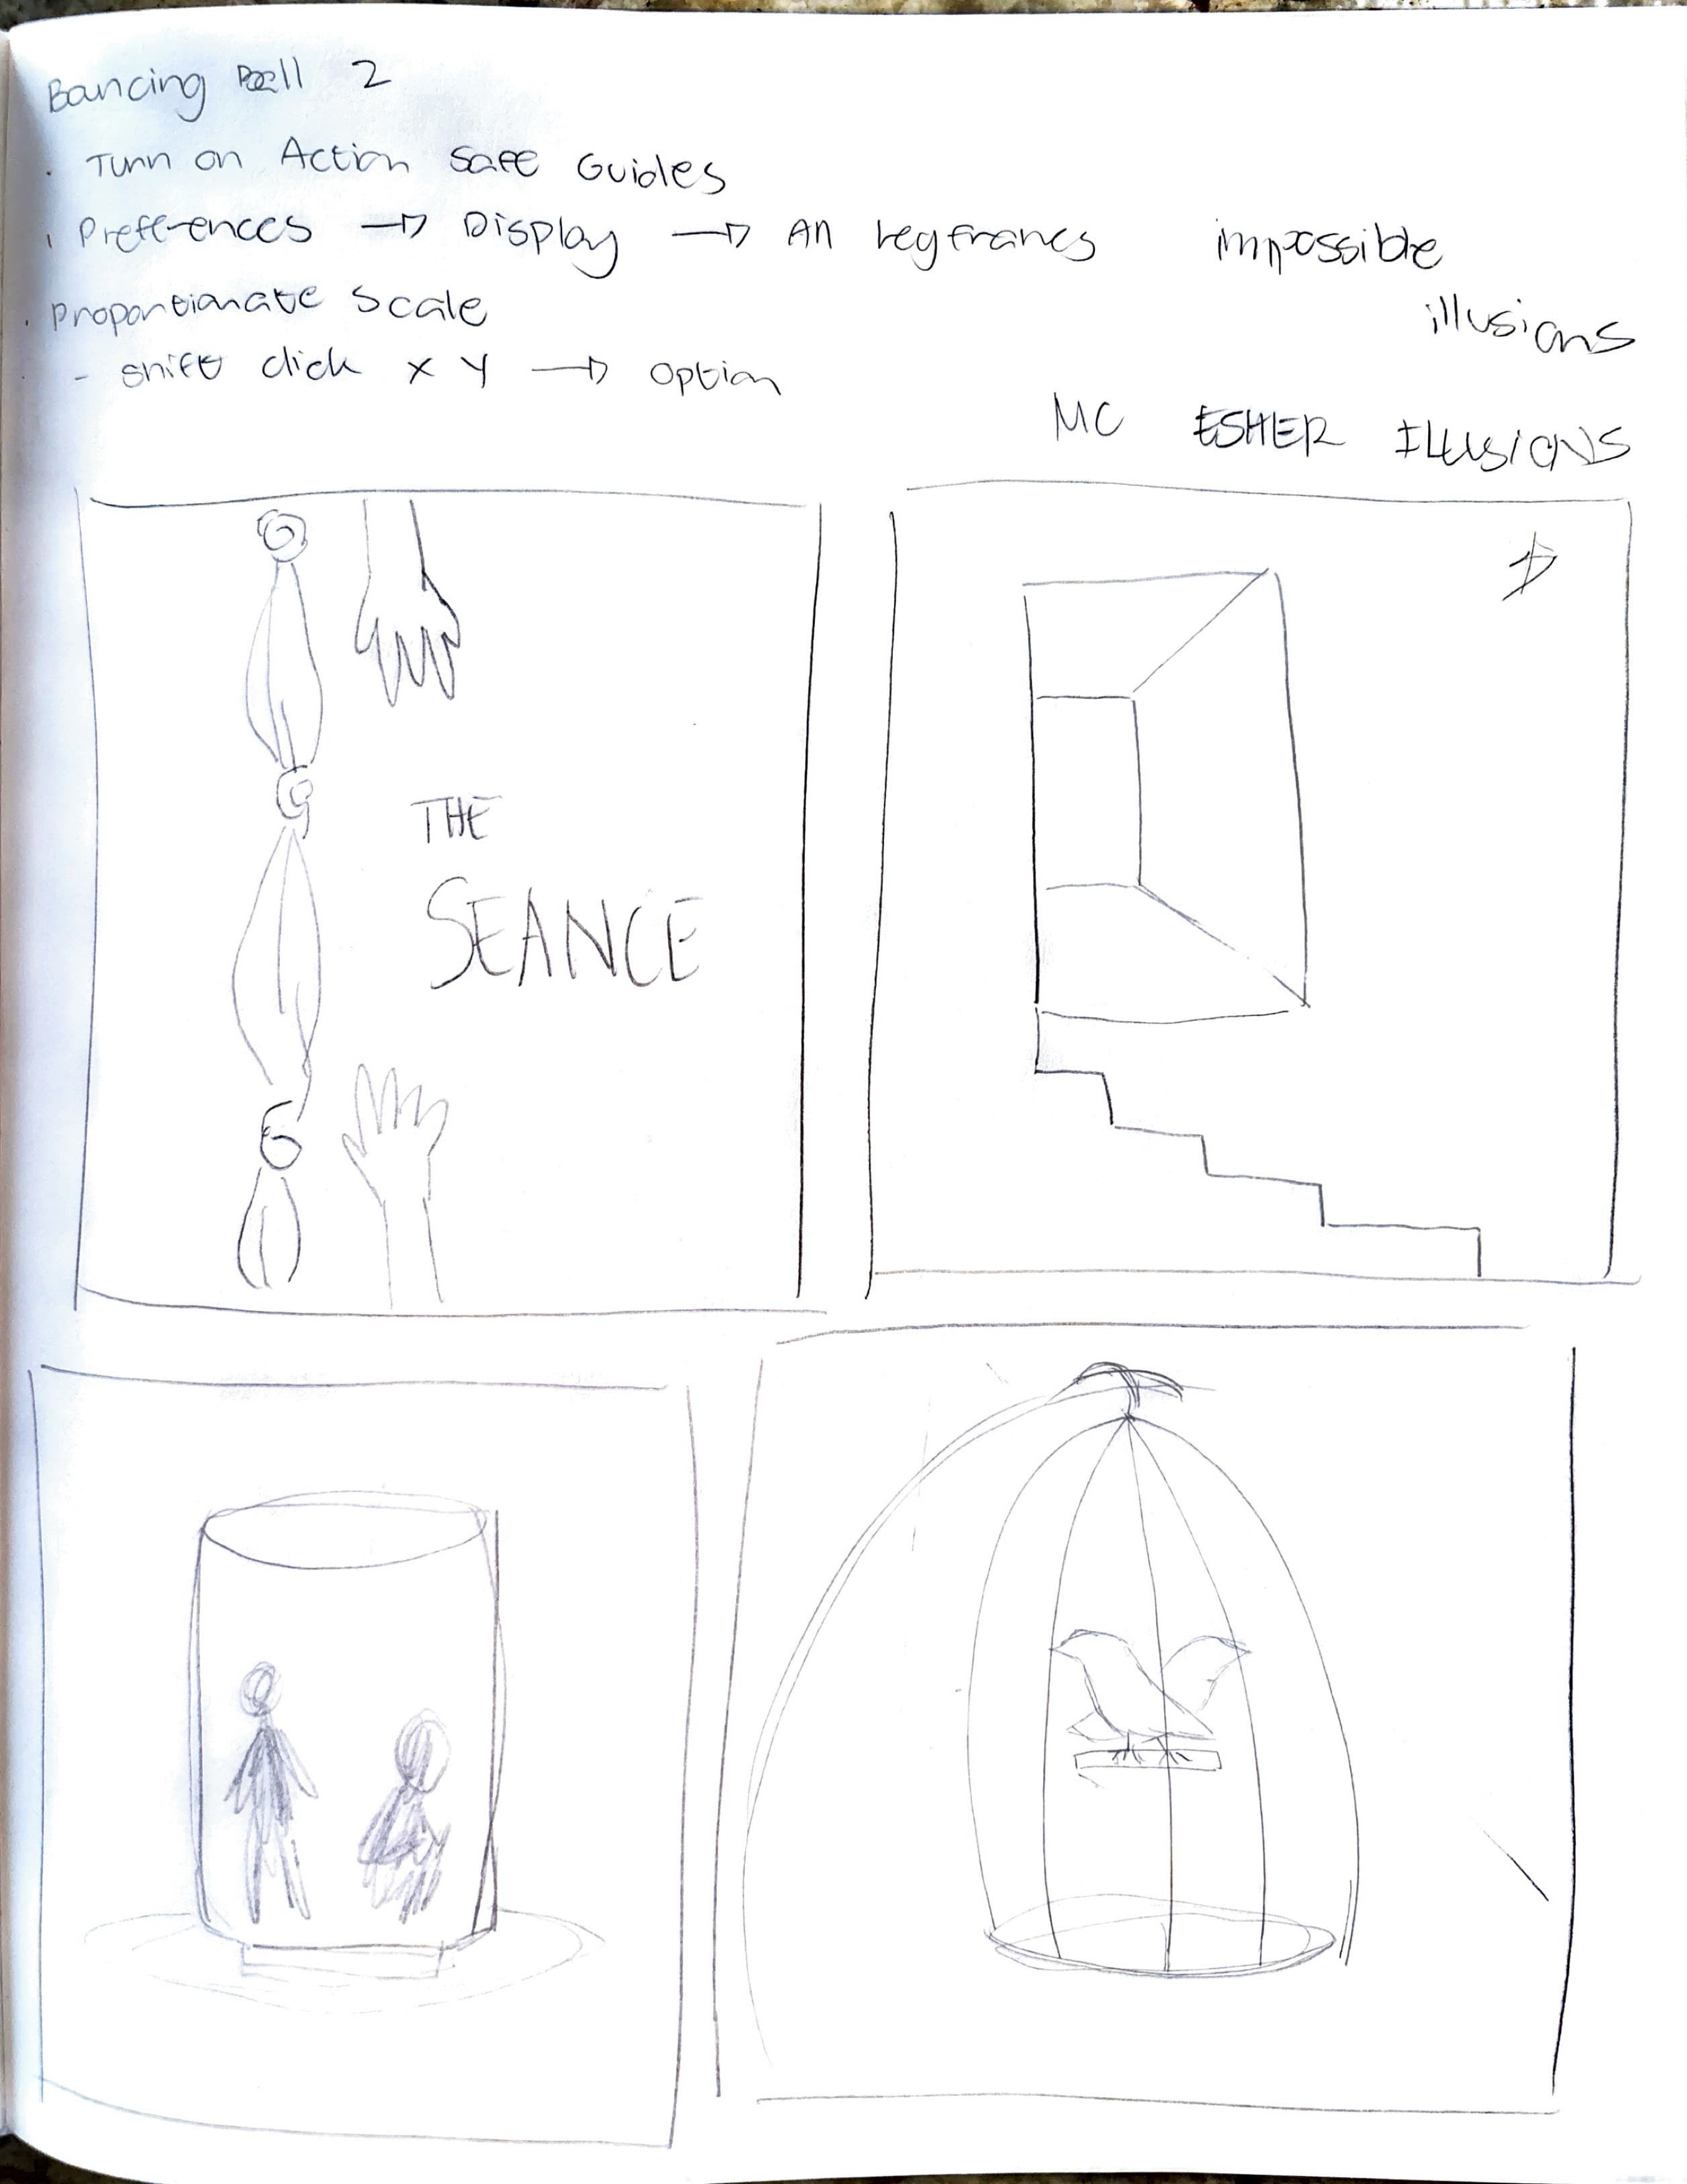 Bancing Ball 2
· Turn on Action Safe Guides
· Preferences → Display → All keyframes
· Proportionate Scale
- shift click X Y → option
impossible
illusions
MC ESHER ILLUSIONS
THE
SEANCE